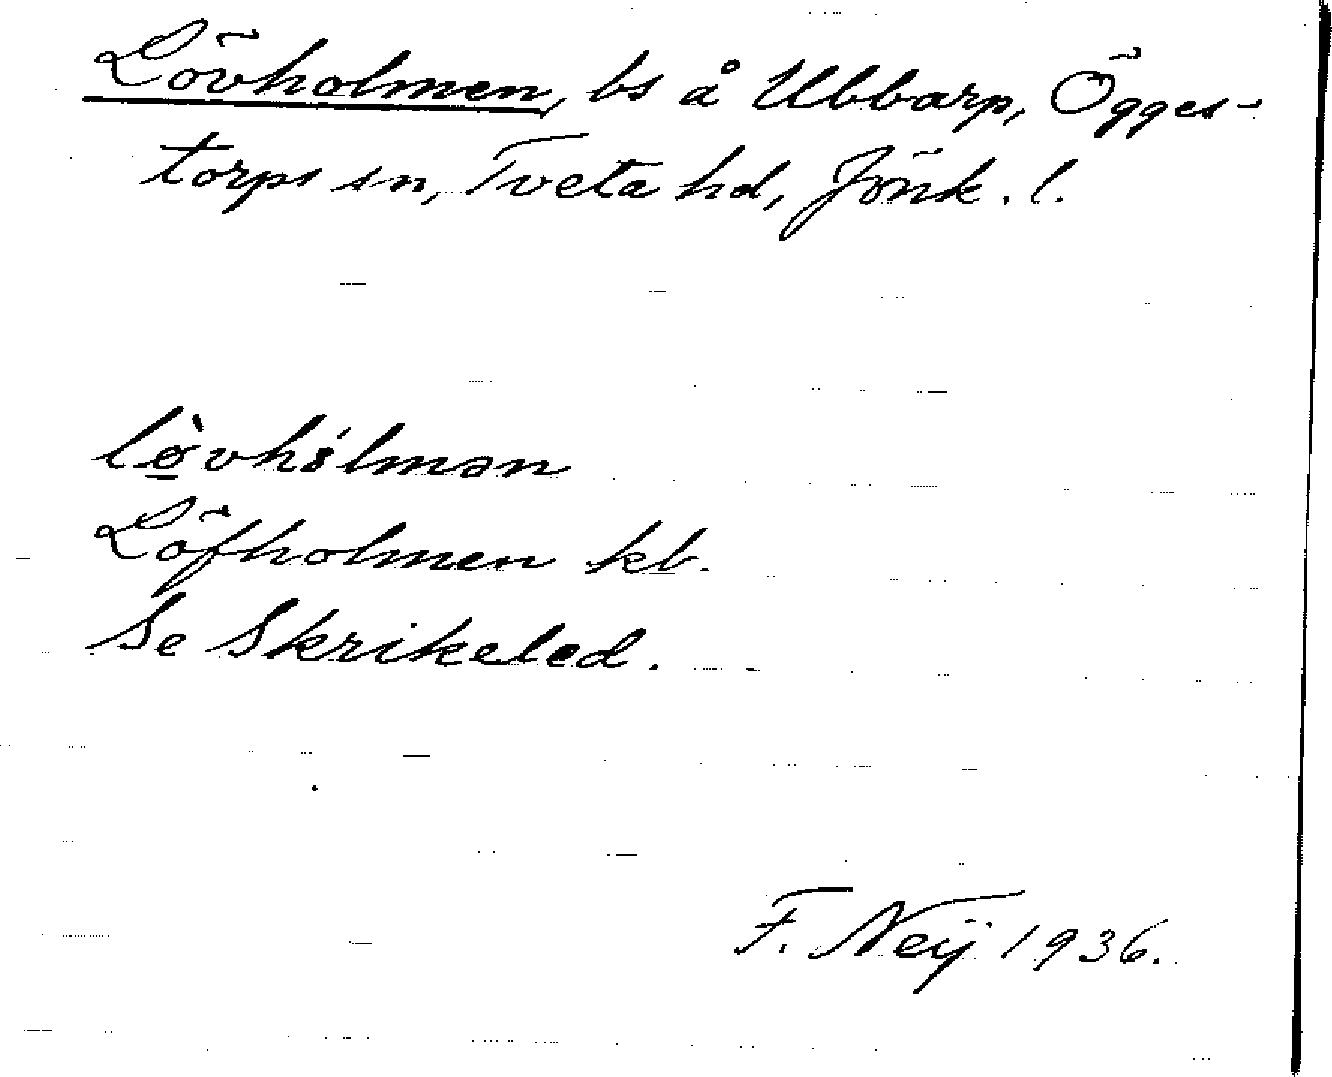 Lövholmen, bs å Ubbarp, Ögges-
torps sn, Tveta hd, Jönk. l.
lø̀vhólmən
Löfholmen kb.
Se Skrikeled.
F. Neij 1936.